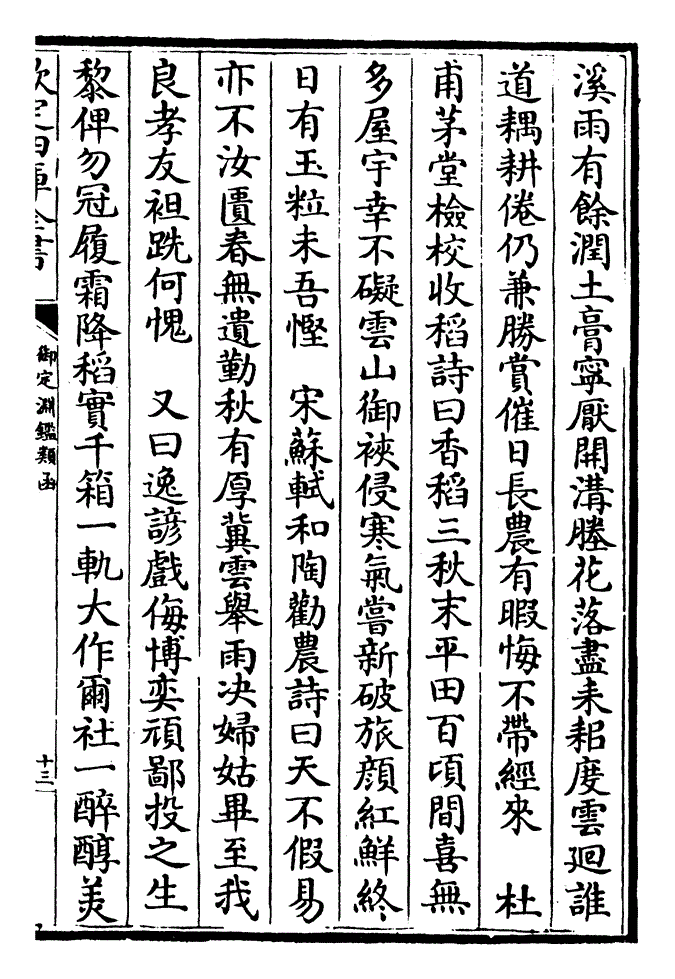 溪雨有餘潤土膏寧厭開溝塍花落盡耒耜度雲廻誰
道耦耕倦仍兼勝賞催日長農有暇悔不帶經來　杜
甫茅堂檢校收稻詩曰香稻三秋末平田百頃間喜無
多屋宇幸不礙雲山御裌侵寒氣嘗新破旅顔紅鮮終
日有玉粒未吾慳　宋蘇軾和陶勸農詩曰天不假易
亦不汝匱春無遺勤秋有厚冀雲舉雨决婦姑畢至我
良孝友袒跣何愧　又曰逸諺戲侮博奕頑鄙投之生
黎俾勿冠履霜降稻實千箱一軌大作爾社一醉醇羙
欽定四庫全書
御定淵鑑類函
十三